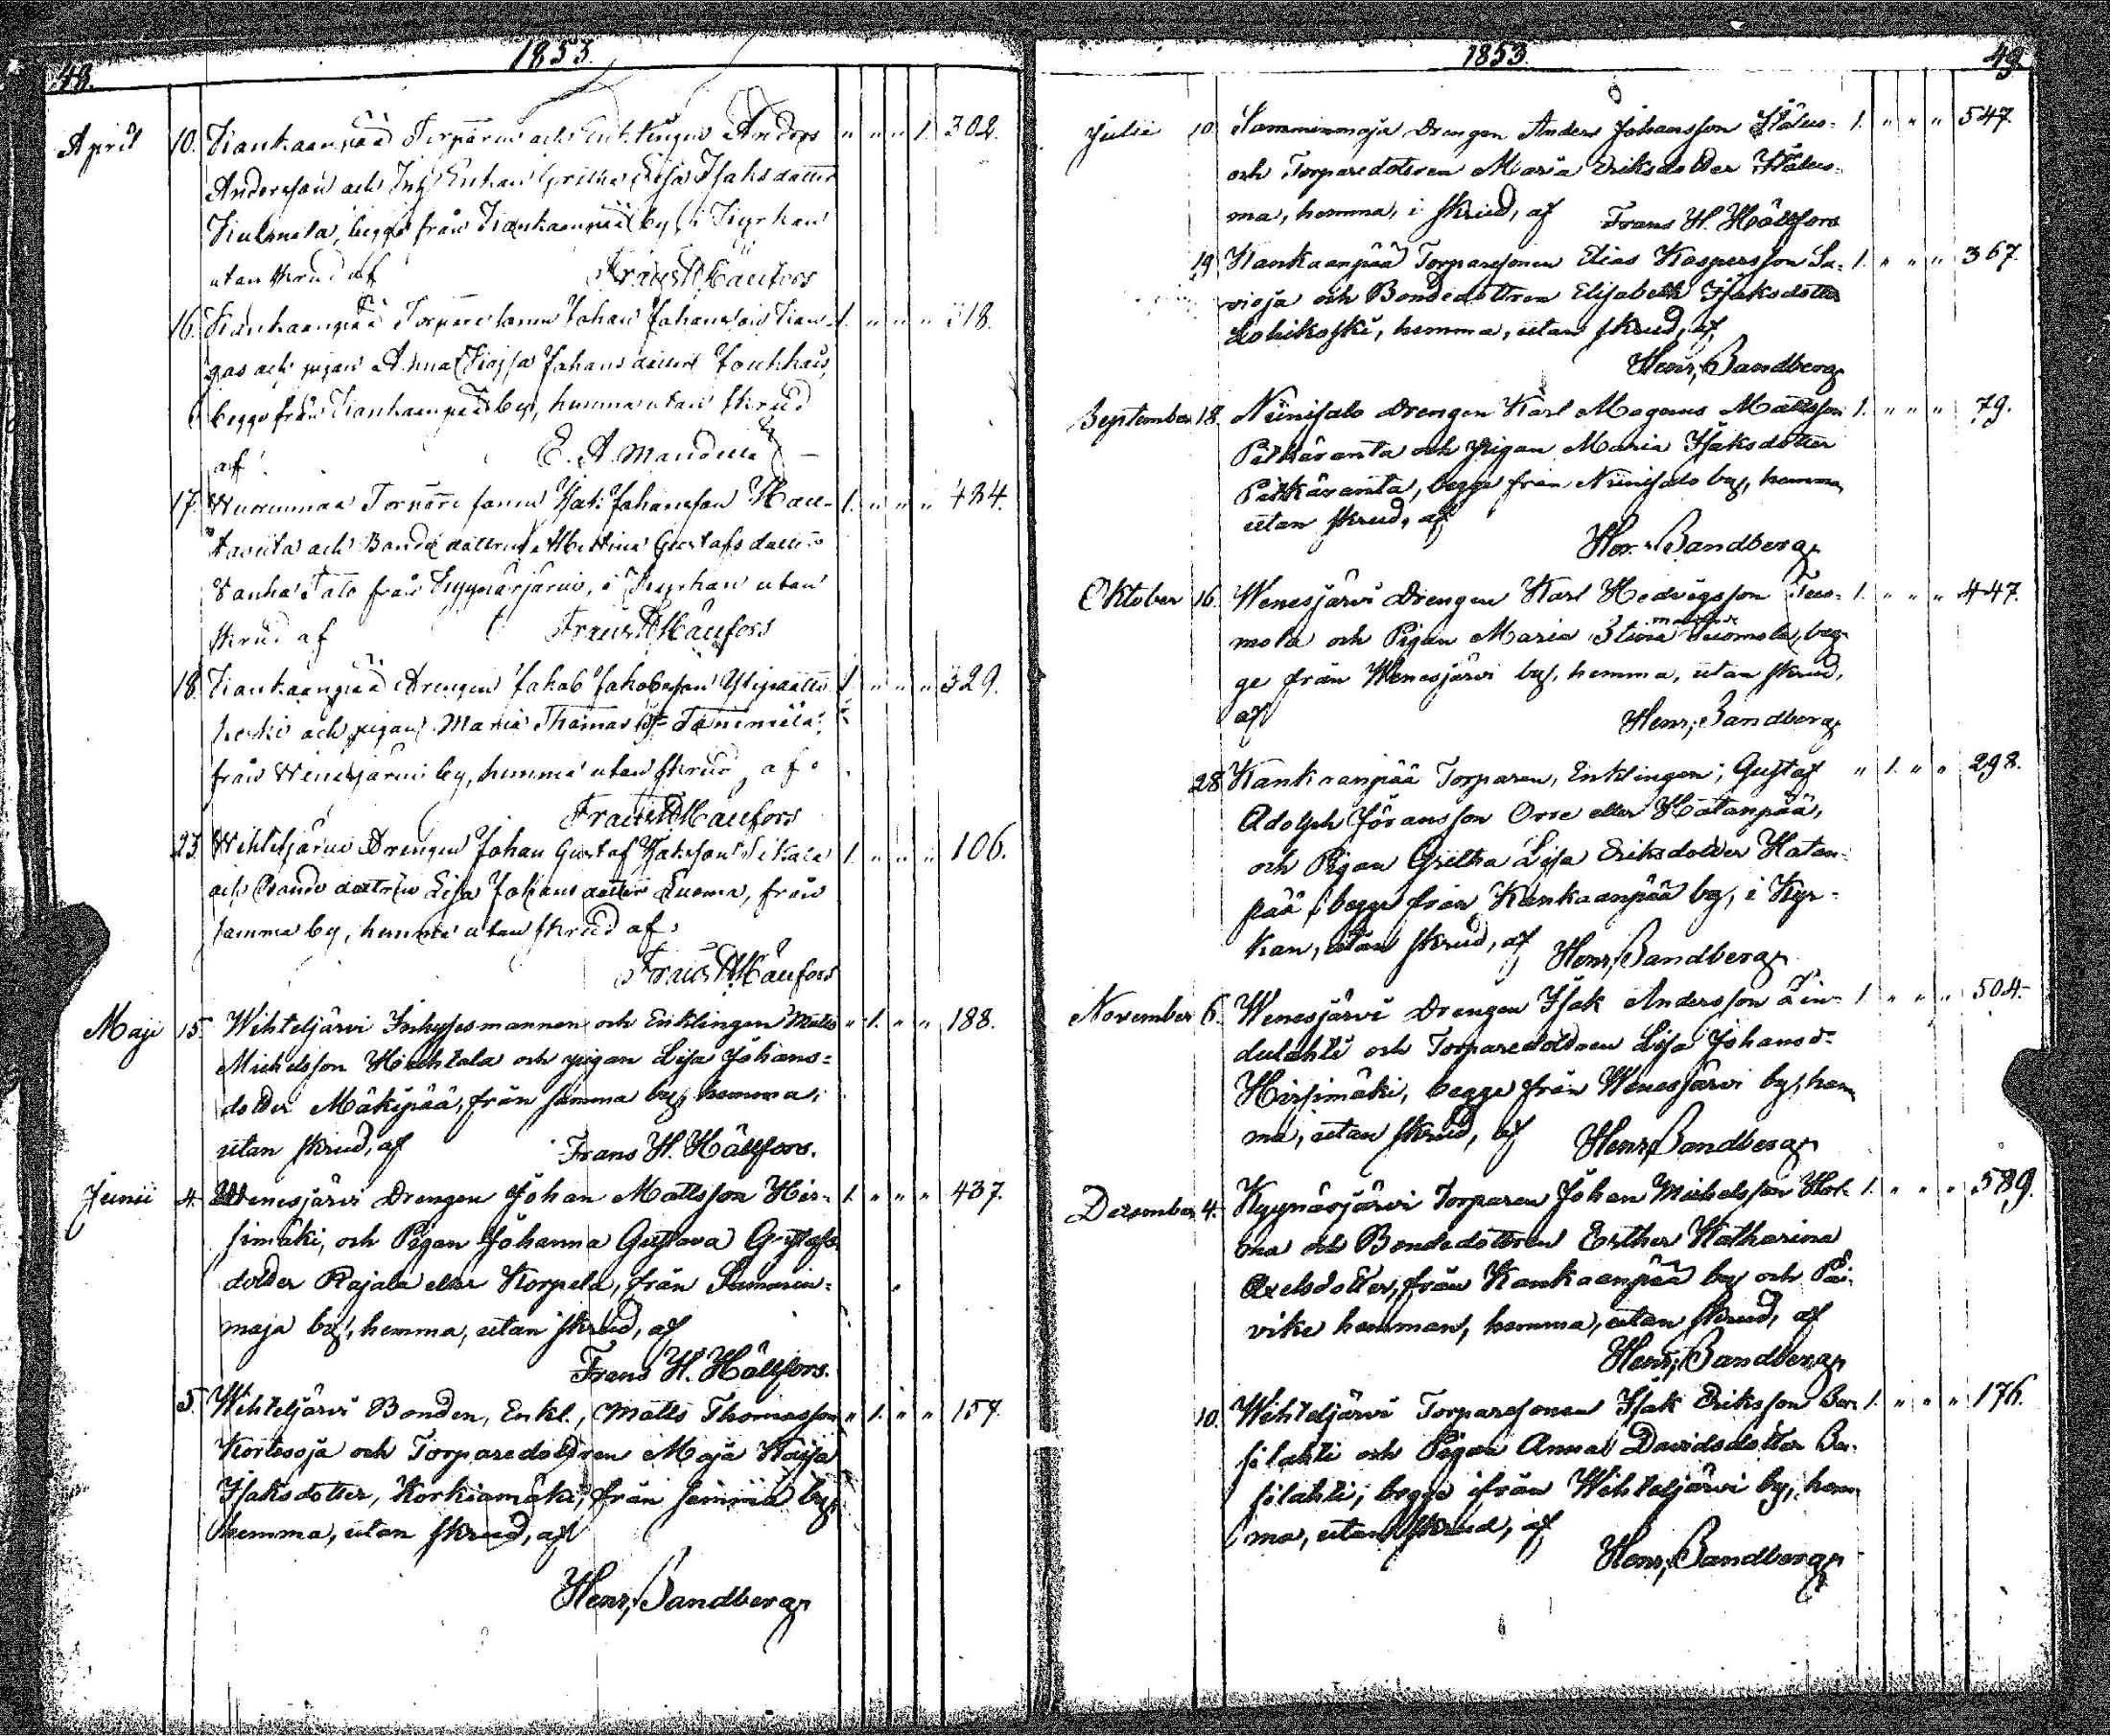 48.
1853.
April 10. Kankaanpää Torparen och Enklingen Anders " " " 1. 302.
Andersson och Enkan Gretha Lisa Isaksdotter
begge från Kankaanpää by, i Kyrkan
utan skrud af Frans H. Hällfors
16. Kankaanpää Torparesonen Johan Johansson Kan- 1. " " " 318.
gas och pigan Anna Kajsa Johansdotter
begge från Kankaanpää by, hemma utan skrud
af E. A. Mandell
17. Torparesonen Isak Johansson Hau- 1. " " " 424.
tavita och Bondedottren Gustafsdotter
Vanha Talo från Kyynärjärvi, i Kyrkan utan
skrud af Frans H. Hällfors
18. Kankaanpää Drengen Jakob Jakobsson 1. " " " 329.
koski och pigan Maria Thomasd:r Tammela,
från Wenesjärvi by, hemma utan skrud, af
Frans H. Hällfors
23. Wihteljärvi Drengen Johan Gustaf Isaksson Sikala 1. " " " 106.
och Bondedottren Lisa Johansdotter Luoma, från
samma by, hemma utan skrud af
Frans H. Hällfors
Maji 15. Wihteljärvi Inhysesmannen och Enklingen Matts " 1. " " 188.
Michelsson Huhtala och pigan Lisa Johans-
dotter Mäkipää, från samma by, hemma,
utan skrud, af Frans H. Hällfors.
Junii 4. Wenesjärvi Drengen Johan Mattsson Hir- 1. " " " 437.
simäki, och Pigan Johanna Gustava Gustafs
dotter Rajala eller Korpela, från Sammin-
maja by, hemma, utan skrud, af
Frans H. Hällfors.
5. Wihteljärvi Bonden, Enkl., Matts Thomasson " 1. " " 157.
Kortesoja och Torparedottren Maja Kaisa
Isaksdotter, Korkiamäki, från samma by,
hemma, utan skrud, af
Henr. Sandberg
1853.
49.
Julii 10. Samminmaja Drengen Anders Johansson Ståluo- 1. " " " 547.
och Torparedottren Maria Eriksdotter Ståluo-
ma, hemma, i skrud, af Frans H. Hällfors
19. Kankaanpää Torparesonen Elias Kaspersson Sa- 1. " " " 367.
vioja och Bondedottren Elisabeth Isaksdotter
Lohikoski, hemma, utan skrud, af
Henr. Sandberg
September 18. Niinisalo Drengen Karl Magnus Mattsson 1. " " " 79.
Pitkäranta och Pigan Maria Isaksdotter
Pitkäranta, begge från Niinisalo by, hemma,
utan skrud, af
Hen. Sandberg
Oktober 16. Wenesjärvi Drengen Karl Hedvigsson Tuo- 1. " " " 447.
mola och Pigan Maria Stina Tuomola, beg-
ge från Wenesjärvi by, hemma, utan skrud,
af Henr. Sandberg
28. Kankaanpää Torparen, Enklingen, Gustaf " 1. " " 298.
Adolph Jöransson Orre eller Hatanpää,
och Pigan Gretha Lisa Eriksdotter Hatan-
pää, begge från Kankaanpää by, i Kyr-
kan, utan skrud, af Henr. Sandberg
November 6. Wenesjärvi Drengen Isak Andersson Lin- 1. " " " 504.
dulahti och Torparedottren Lisa Johansd:r
Hirsimäki, begge från Wenesjärvi by, hem
ma, utan skrud, af Henr. Sandberg
December 4. Kyynärjärvi Torparen Johan Michelsson Hol- 1. " " " 589.
ma och Bondedottren Esther Katharina
Axelsdotter, från Kankaanpää by och Päi-
vike hemman, hemma, utan skrud, af
Henr. Sandberg
10. Wihteljärvi Torparesonen Isak Eriksson Ber- 1. " " " 176.
silahti och Pigan Anna Davidsdotter Ber-
silahti, begge ifrån Wihteljärvi by, hem
ma, utan skrud, af
Henr. Sandberg